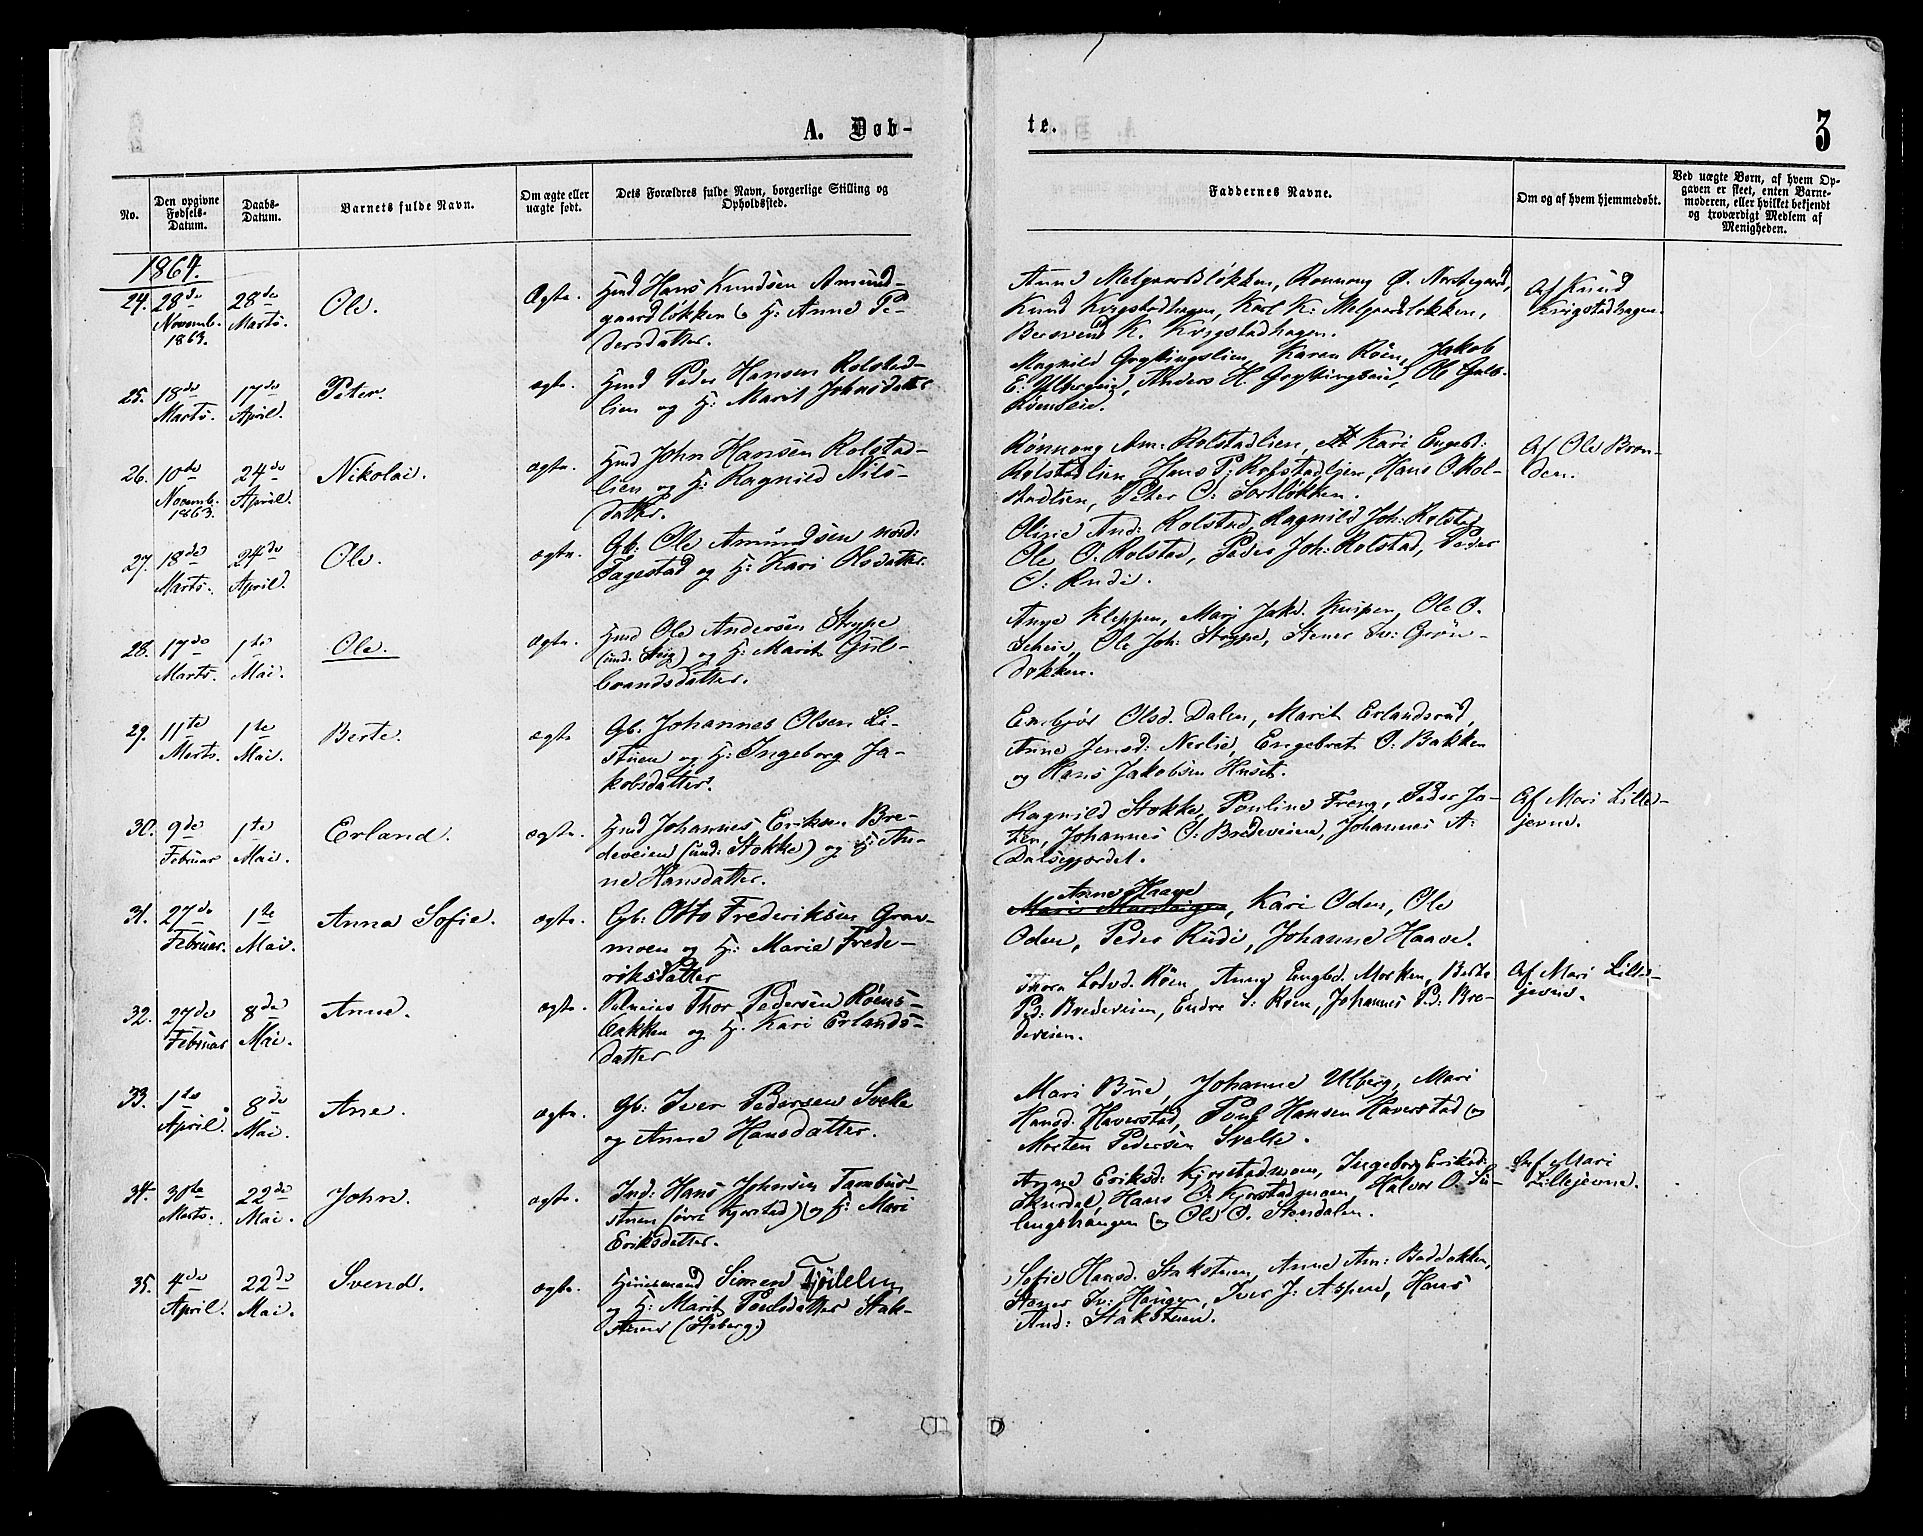 A. Døb-
te.
3
No.
Den opgivne Fødsels-Datum.
Daabs-Datum.
Barnets fulde Navn.
Om ægte eller uægte født.
Dets Forældres fulde Navn, borgerlige Stilling og Opholdssted.
Faddernes Navne.
Om og af hvem hjemmedøbt.
Ved uægte Børn, af hvem Opgaven er skeet, enten Barnemoderen, eller hvilket bekjendt og troværdigt Medlem af Menigheden.
1864.
24. 28de Novemb. 1863. 28de Marts. Ole. Ægte.
Hmd Hans Knudsen Amund-
gaardløkken og H: Anne Pe-
dersdatter.
Melgaardsløkken, Rønnaug Ø. Nordegaard,
Knud Kvigstadhagen, Karl K: Melgaardsløkken,
K. Kvigstadhagen.
Af Knud
Kvigstadhagen.
25. 18de Marts. 17de April. Peter. ægte.
Hmd Peder Hansen Rolstad-
lien og H: Marit Johnsdatter
Magnild Karen Röen, Jakob
E: Anders H. Ole
26. 10de Novemb. 1863. 24de April. Nikolai. ægte.
Hmd John Hansen Rolstad-
lien og H: Ragnild Nils-
datter.
Rønnaug Am: Rolstadlien, Kari Engebr:
Rolstadlien, Hans P: Rolstadlien, Hans O. Rol-
stadlien, Peter O: Sørløkken.
Af Ole Bræn-
den.
27. 18de Marts. 24de April. Ole. ægte.
Gb: Ole Amundsen nord:
Fagestad og H: Kari Olsdatter.
And: Rolstad, Ragnild Joh: Rolstad
Ole O: Rolstad, Peder Joh: Rolstad, Peder
O: Rudi.
28. 17de Marts. 1ste Mai. Ole. ægte.
Hmd Ole Andersen Strype
(und. Steig) og H: Marit Gul-
brandsdatter.
Kleppen, Mari Jakd. Ole O.
Scheie, Ole Joh: Strype, Stener Sv: Grøn-
dokken.
29. 11te Marts. 1ste Mai. Berte. ægte
Gb. Johannes Olsen Li-
stuen og H: Ingeborg Ja-
kobsdatter.
Embjør Olsd. Dalen, Marit Erlandsrud,
Anne Jensd: Nerlie, Engebret O: Bakken
og Hans Jakobsen Huset.
30. 9de Februar 1ste Mai. Erland. ægte.
Hmd Johannes Eriksen Bre-
deveien (und: Stokke) og H: An-
ne Hansdatter.
Ragnild Stokke, Pauline Freng, Peder Ja-
ten, Johannes O: Bredeveien, Johannes A:
Dalsegjerdet.
Af Mari Lille-
jevne.
31. 27de Februar. 1ste Mai. Anna Sofie. ægte.
Gb: Otto Frederiksen Grav-
moen og H: Marie Frede-
riksdatter
Anne Haave
, Kari Oden, Ole
Oden, Peder Rudi, Johanne Haave.
32. 27de Februar 8de Mai. Anne. ægte.
Thor Pedersen Röens-
bakken og H: Kari Erlands-
datter
Thora Lodvd. Röen, Anne Engbd. Morken, Berte
Pd: Bredeveien, Endre S: Roen, Johannes Pd: Bre-
deveien.
Af Mari Lille-
jevne.
33. 1ste April. 8de Mai. Ane. ægte.
Gb: Iver Pedersen Svelle
og Anne Hansdatter.
Mari Bue, Johanne Ulberg, Mari
Hansd. Haverstad, Poul Hansen Haverstad og
Morten Pedersen Svelle.
34. 30te Marts. 22de Mai. John. ægte.
Ind: Hans Johnsen Tambur-
stuen (øvre Kjorstad) og H: Mari
Eriksdatter.
Anne Eriksd: Kjorstadmoen, Ingeborg Eriksd:
Skurdal, Hans O: Kjorstadmoen, Halvor O. Su-
lengshaugen og Ole O. Stendalen.
Af Mari
Lillejevne.
35. 4de April. 22de Mai. Svend. ægte.
Huusmand Simen
og H: Marit Poulsdatter Stak-
stuen
Sofie Hansd. Stakstuen, Anne Am: Baddokken,
Stener Sv: Haugen, Iver J: Aspen, Hans
And: Stakstuen.